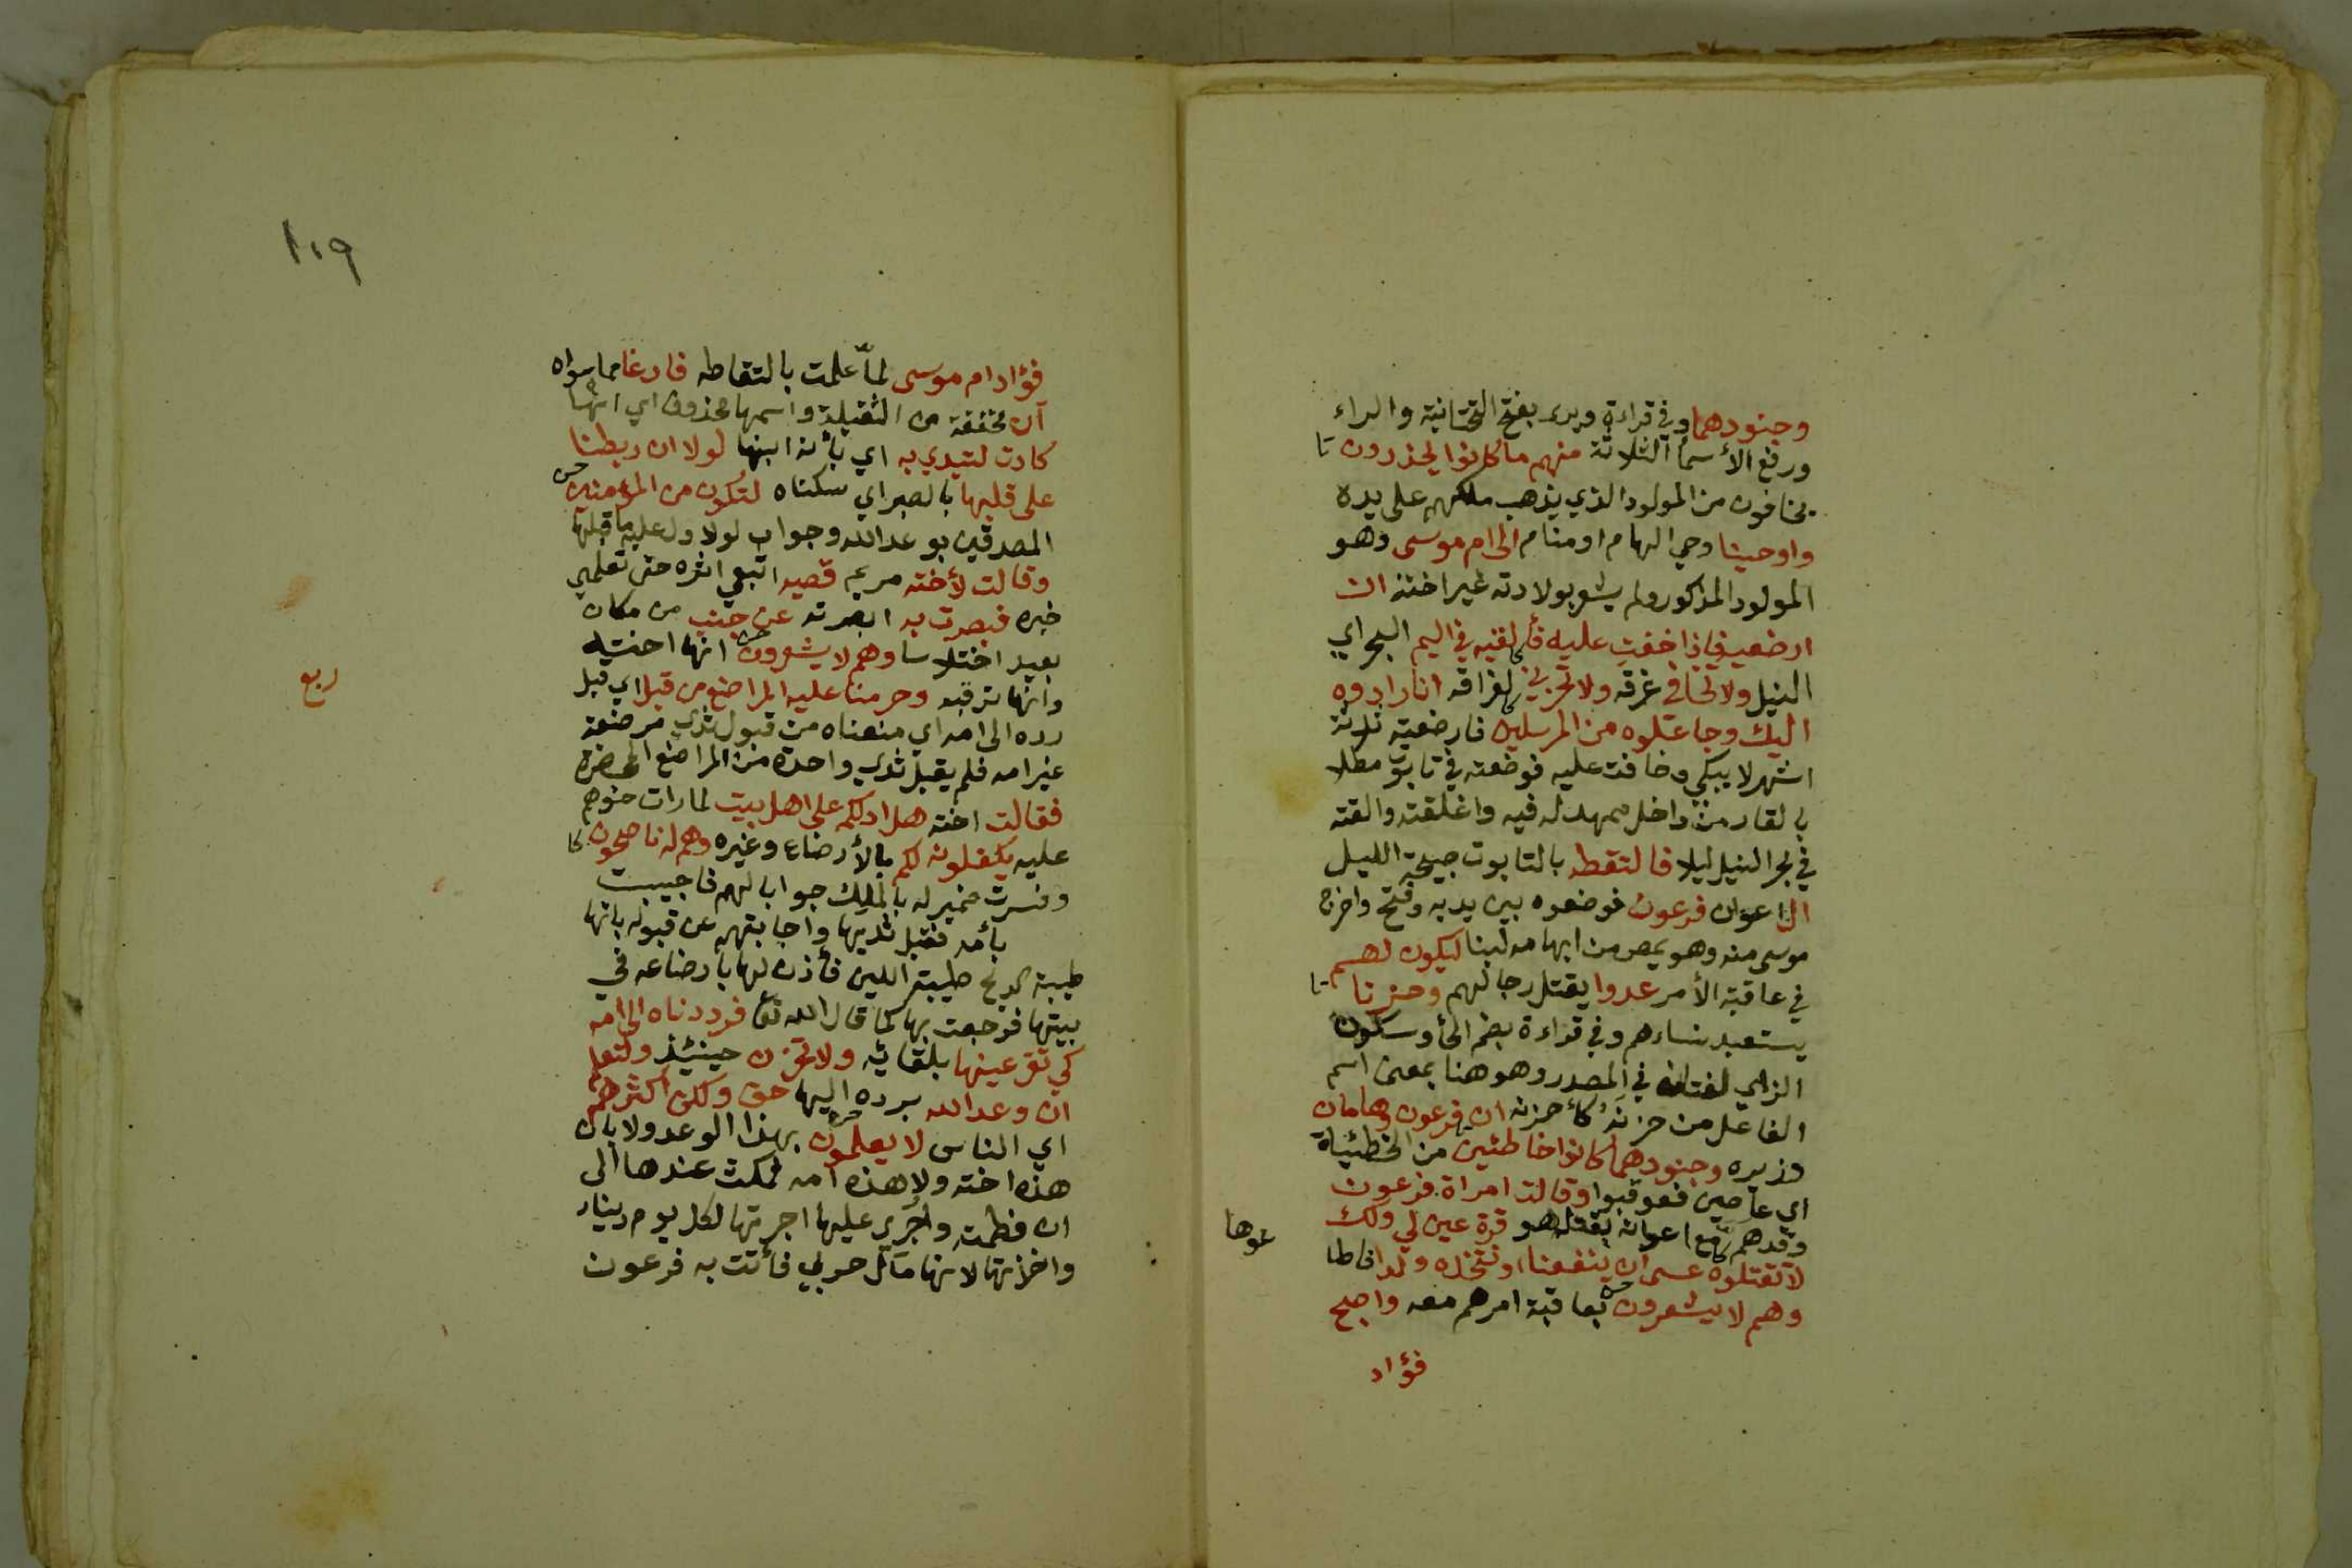 وجنودهما وفي قراءة ويرى بفتح التحتانية والراء
ورفع الأسما الثلاثة منهم ما كانوا يحذرون تا
يخافون من المولود الذي يذهب ملكهم على يده
واوحينا وحي الهام او منام الى ام موسى وهو
المولود المذكور ولم يشعر بولادته غير اخته ان
ارضعيه فإذا خفت عليه فألقيه في اليم البحر اي
النيل ولا تخافي غرقه ولا تحزني لفراقه انا رادوه
اليك وجاعلوه من المرسلين فارضعته ثلاثة
اشهر لا يبكي وخافت عليه فوضعته في تابوت مطلا
بالقار من داخل ممهد له فيه واغلقته والقته
في بحر النيل ليلا فالتقطه بالتابوت صبيحة الليل
ال اعوان فرعون فوضعوه بين يديه وفتح واخرج
موسى منه وهو يمص من ابهامه لبنا ليكون لهم
في عاقبة الأمر عدوا يقتل رجالهم وحزنا تا
يستعبد نساءهم وفي قراءة بضم الحأ وسكون
الزاي لغتان في المصدر وهو هنا بمعنى اسم
الفاعل من حزنه كأحزنه ان فرعون وهامان
وزيره وجنودهما كانوا خاطئين من الخطيئاة
اي عاصين فعوقبوا وقالت امراة فرعون
وقدهم مع اعوانه بقتله هو قرة عين لي ولك
لا تقتلوه عسى ان ينفعنا او نتخذه ولدا فاطا
عوها
وهم لا يشعرون بعاقبة امرهم معه واصبح
فؤاد
١٠٩
فؤاد ام موسى لمّا علمت بالتقاطه فارغا مما سواه
ان مخففة من الثقيلة واسمها محذوف اي انها
كادت لتبدي به اي بأنه ابنها لولا ان ربطنا
على قلبها بالصبر اي سكناه لتكون من المؤمنين
المصدقين بوعد الله وجواب لولا دل عليه ما قبلها
وقالت لأخته مريم قصيه اتبعي اثره حتى تعلمي
خبره فبصرت به ابصرته عن جنب من مكان
بعيد اختلاسا وهم لا يشعرون انها اخته
وانها ترقبه وحرمنا عليه المراضع من قبل اي قبل
ربع
رده الى امه اي منعناه من قبول ثدي مرضعة
غير امه فلم يقبل ثدي واحدة من المراضع المحضرة
فقالت اخته هل ادلكم على اهل بيت لما رات حنوهم
عليه يكفلونه لكم بالأرضاع وغيره وهم له ناصحون
وفسرت ضمير له بالملك جوابا لهم فاجيبت
بأمه فقبل ثديها واجابتهم عن قبوله بانها
طيبة الريح طيبة اللبن فأذن لها بارضاعه في
بيتها فرجعت بها كما قال الله تعا فرددناه الى امه
كي تقر عينها بلقائه ولا تحزن حينئذ ولتعلم
ان وعد الله برده اليها حق ولكن اكثرهم
اي الناس لا يعلمون بهذا الوعد ولا بان
هذه اخته ولا هذه امه فمكث عندها الى
ان فطمته واجري عليها اجرتها لكل يوم دينار
واخذتها لانها مال حربي فأتت به فرعون